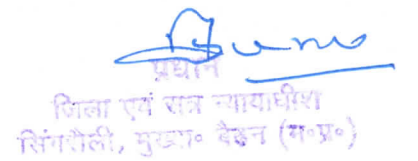 प्रधान
जिला एवं सत्र न्यायाधीश
सिंगरौली, मुख्या० बैढ़न (म०प्र०)